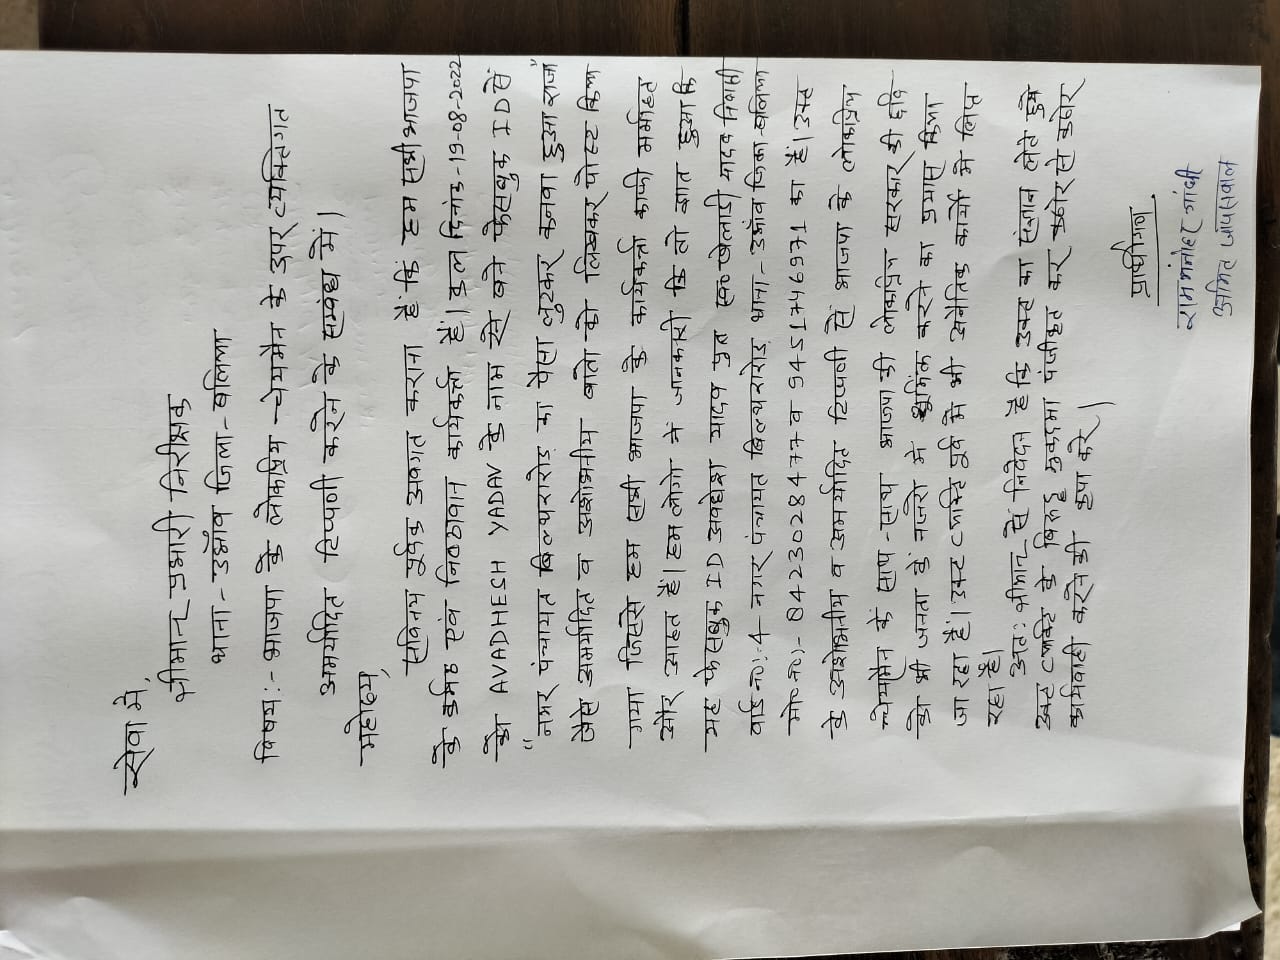 सेवा में,
श्रीमान् प्रभारी निरीक्षक
थाना - उभाँव जिला - बलिया
विषय :- भाजपा के लोकप्रिय चेयरमैन के उपर व्यक्तिगत
अमर्यादित टिप्पणी करने के सम्बंध में।
महोदय,
सविनय पूर्वक अवगत कराना हैं कि हम सभी भाजपा
के कर्मठ एवं निष्ठावान कार्यकर्त्ता हैं। कल दिनांक - 19-08-2022
को AVADHESH YADAV के नाम से बने फेसबुक ID से
"नगर पंचायत बिल्थरारोड का पैसा लुटकर कनवा हुआ राजा"
जैसे अमर्यादित व अशोभनीय बातो को लिखकर पोस्ट किया
गया जिससे हम सभी भाजपा के कार्यकर्त्ता काफी मर्माहत
और आहत हैं। हम लोगो ने जानकारी कि तो ज्ञात हुआ कि
यह फेसबुक ID अवधेश यादव पुत्र स्व० खेलाडी यादव निवासी
वार्ड नo:- 4 नगर पंचायत बिल्थरारोड थाना - उभाँव जिला - बलिया
मो० नo:- 8423028477 व 9451746971 का हैं। उक्त
के अशोभनीय व अमर्यादित टिप्पणी से भाजपा के लोकप्रिय
चेयरमैन के साथ - साथ भाजपा की लोकप्रिय सरकार की छवि
को भी जनता के नजरो में धुमिल करने का प्रयास किया
जा रहा हैं। उक्त व्यक्ति पुर्व में भी अनैतिक कार्यो में लिप्त
रहा हैं।
अतः श्रीमान से निवेदन हैं कि उक्त का संज्ञान लेते हुये
उक्त व्यक्ति के विरुद्ध मुकदमा पंजीकृत कर कठोर से कठोर
कार्यवाही करने की कृपा करे।
प्रार्थीगण
राम मनोहर गांधी
अमित जायसवाल